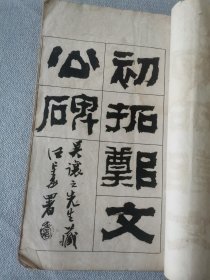 初拓鄭文
公碑
吳讓之先生藏
署